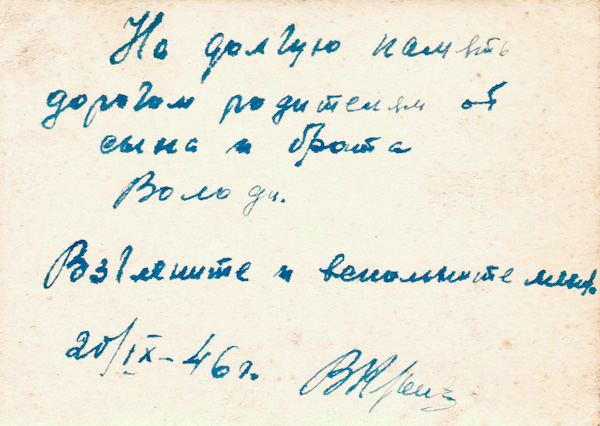 На долгую память
дорогим родителям от
сына и брата
Володи.
Взгляните и вспомните меня.
20/IX-46 г.